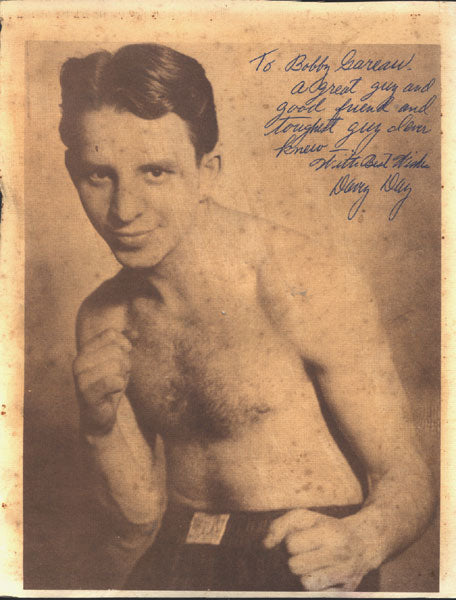 To Bobby Gareau-
a great guy and
good friend and
toughest guy I ever
knew -
With Best Wishes
Davey Day